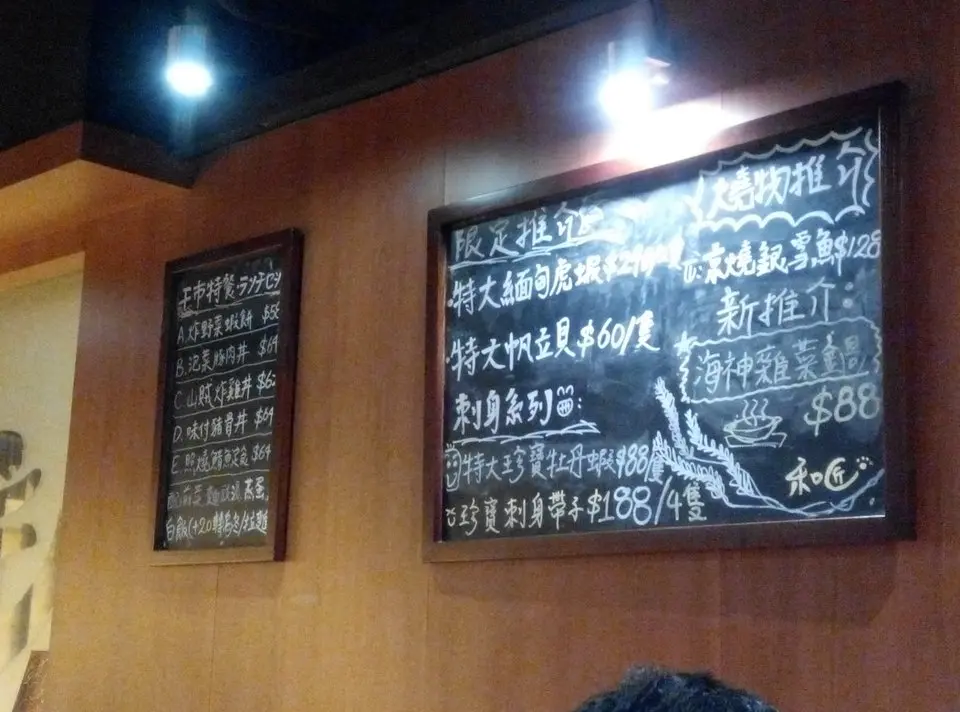 市特餐 ランチセット
A. 炸野菜蝦餅
B. 泡菜豚肉丼 $64
C. 山賊炸雞丼
D. 味付豬骨丼 $64
E. 照燒鯖魚定食 $64
蒸蛋,
白飯(+20轉烏冬/
限定推介
·特大緬甸虎蝦
·特大帆立貝 $60/隻
刺身系列:
特大珍寶牡丹蝦 $88/隻
珍寶刺身帶子 $188/4隻
燒物推介
京燒銀雪魚 $128
新推介:
海神雜菜鍋
$88
和匠